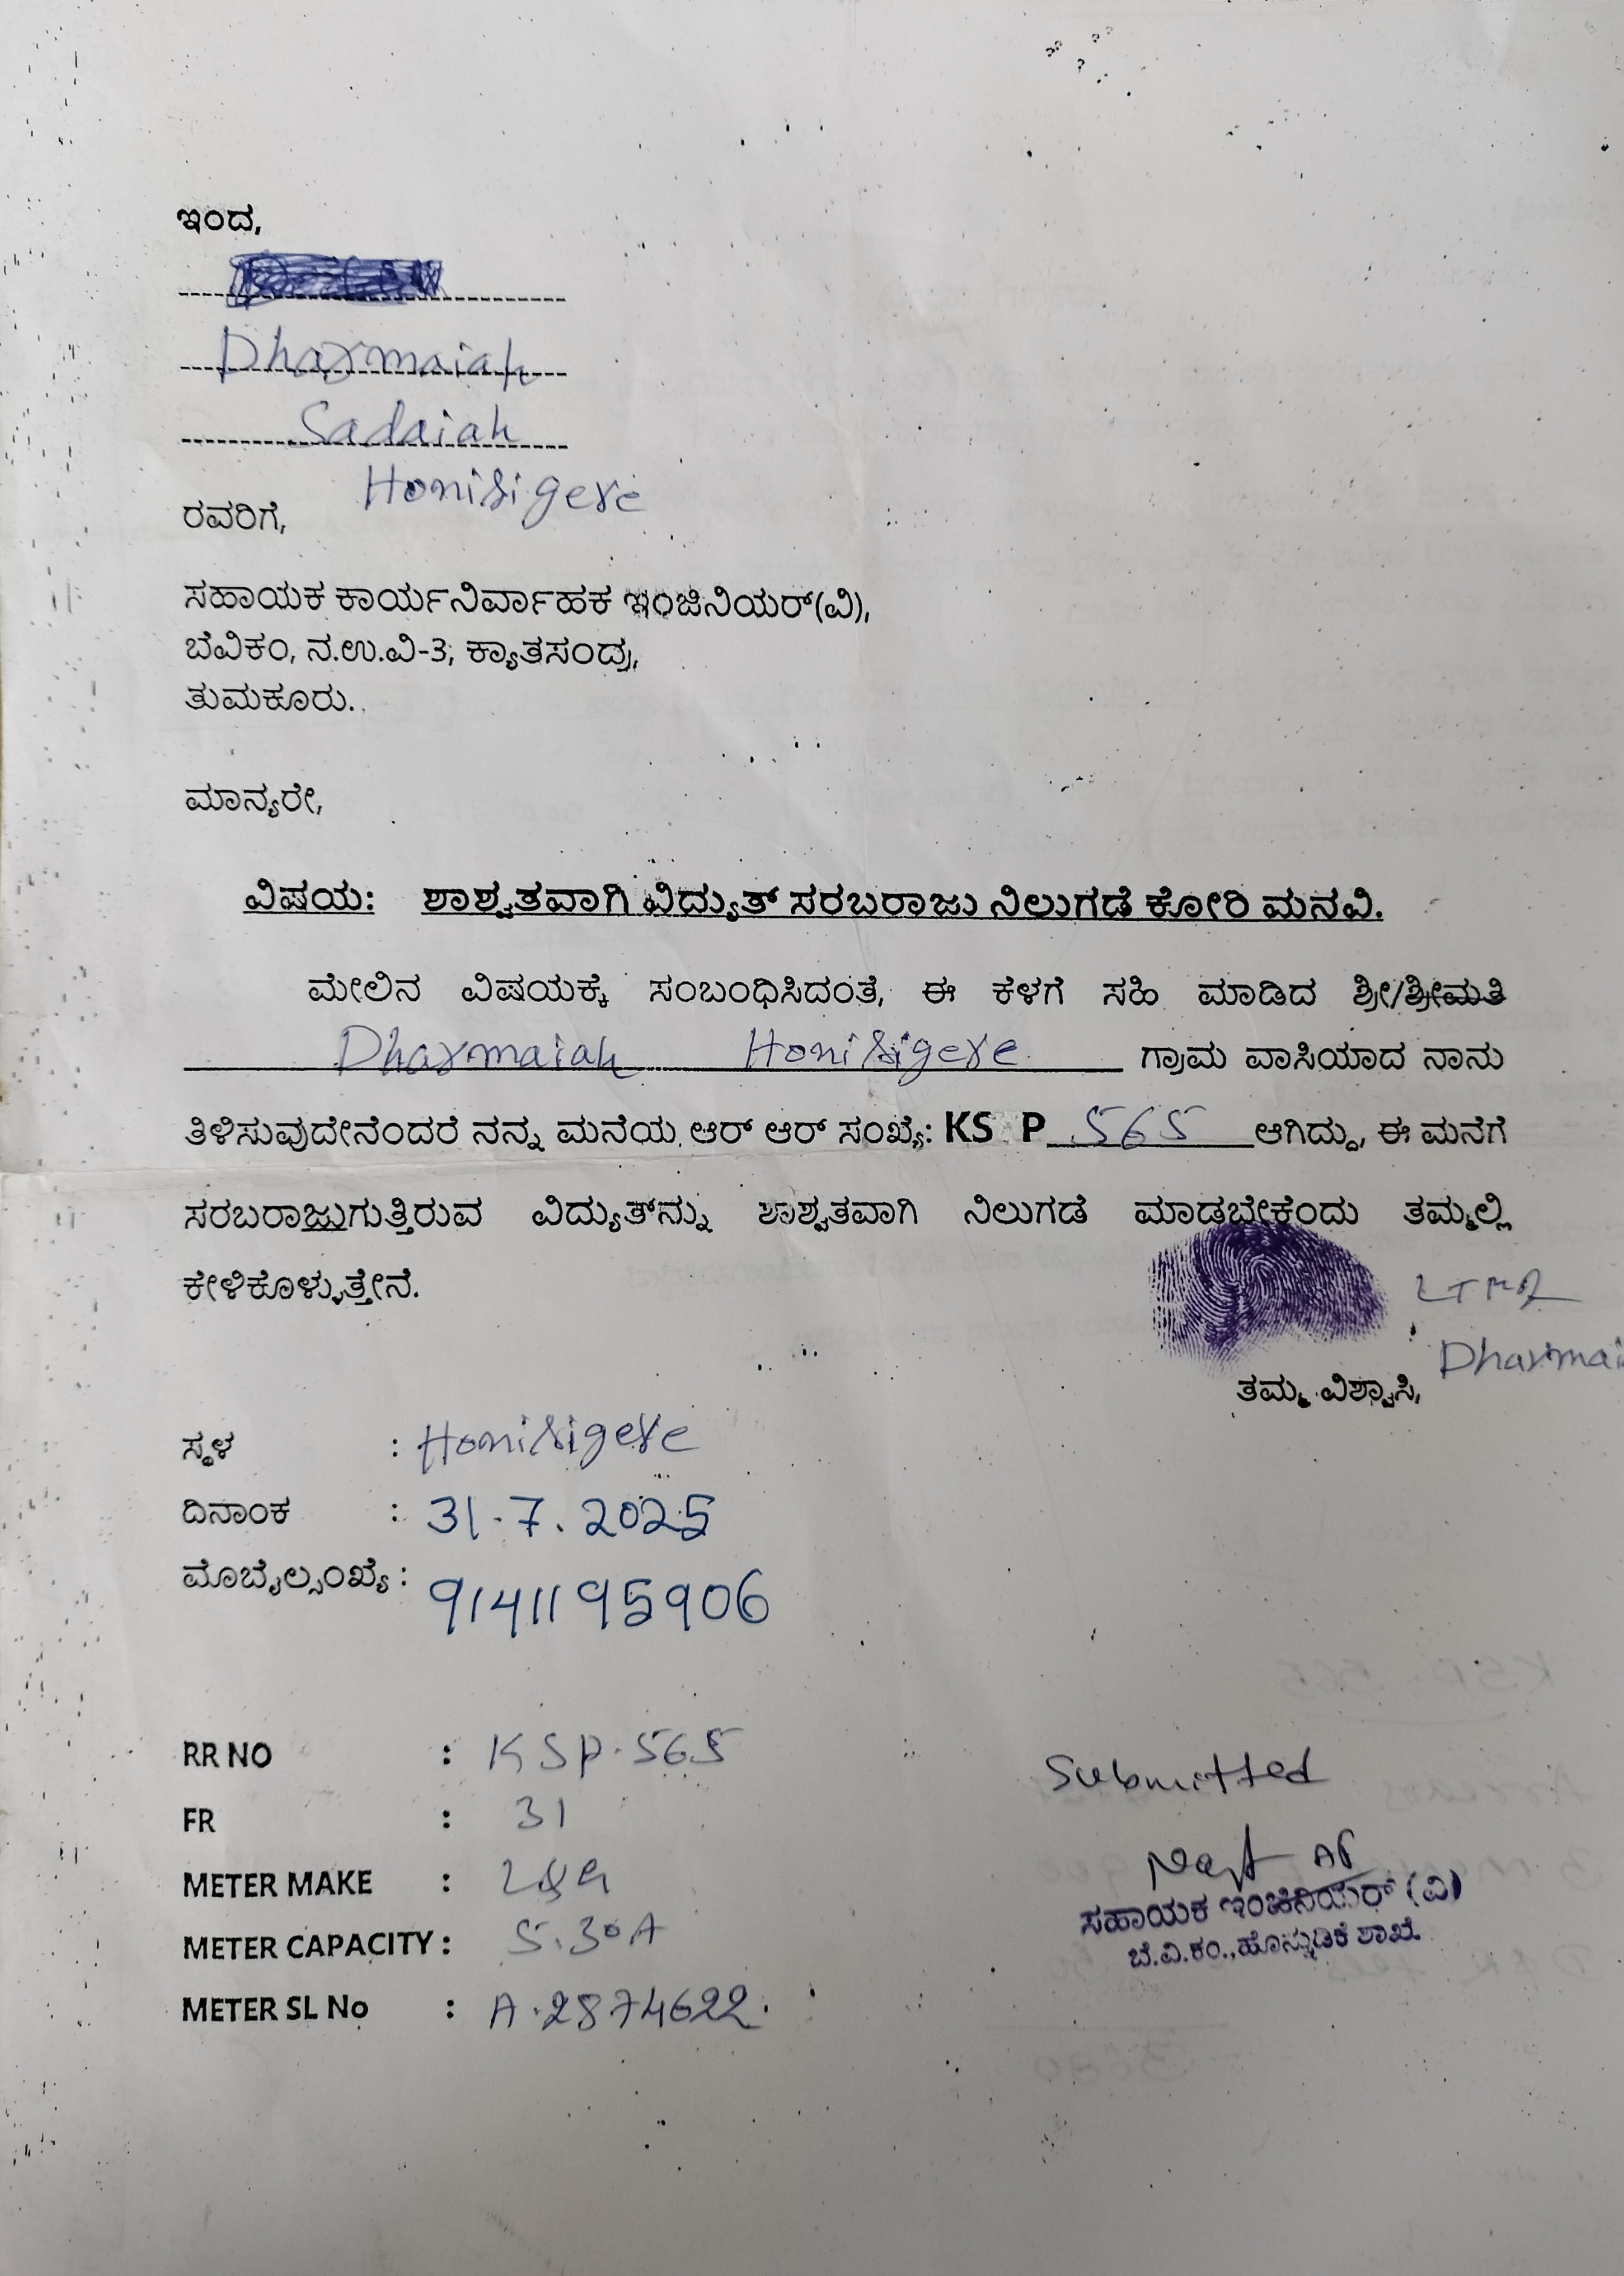 ಇಂದ,
Dharmaiah
Sadaiah
Honisigere
ರವರಿಗೆ,
ಸಹಾಯಕ ಕಾರ್ಯನಿರ್ವಾಹಕ ಇಂಜಿನಿಯರ್(ವಿ),
ಬೆವಿಕಂ, ನ.ಉ.ವಿ-3, ಕ್ಯಾತಸಂದ್ರ,
ತುಮಕೂರು.
ಮಾನ್ಯರೇ,
ವಿಷಯ: ಶಾಶ್ವತವಾಗಿ ವಿದ್ಯುತ್ ಸರಬರಾಜು ನಿಲುಗಡೆ ಕೋರಿ ಮನವಿ.
ಮೇಲಿನ ವಿಷಯಕ್ಕೆ ಸಂಬಂಧಿಸಿದಂತೆ, ಈ ಕೆಳಗೆ ಸಹಿ ಮಾಡಿದ ಶ್ರೀ/ಶ್ರೀಮತಿ
Dharmaiah Honisigere ಗ್ರಾಮ ವಾಸಿಯಾದ ನಾನು
ತಿಳಿಸುವುದೇನೆಂದರೆ ನನ್ನ ಮನೆಯ ಆರ್ ಆರ್ ಸಂಖ್ಯೆ: KS P 565 ಆಗಿದ್ದು, ಈ ಮನೆಗೆ
ಸರಬರಾಜುಗುತ್ತಿರುವ ವಿದ್ಯುತ್‌ನ್ನು ಶಾಶ್ವತವಾಗಿ ನಿಲುಗಡೆ ಮಾಡಬೇಕೆಂದು ತಮ್ಮಲ್ಲಿ
ಕೇಳಿಕೊಳ್ಳುತ್ತೇನೆ.
Dharmai
ತಮ್ಮ ವಿಶ್ವಾಸಿ,
ಸ್ಥಳ : Honisigere
ದಿನಾಂಕ : 31.7.2025
ಮೊಬೈಲ್ಸಂಖ್ಯೆ : 9141195906
RR NO : KSP.565
FR : 31
METER MAKE : L&G
METER CAPACITY : 5.30A
METER SL No : A.2874622.
Submitted
ಸಹಾಯಕ ಇಂಜಿನಿಯರ್ (ವಿ)
ಬೆ.ವಿ.ಕಂ., ಹೊನ್ನುಡಿಕೆ ಶಾಖೆ.